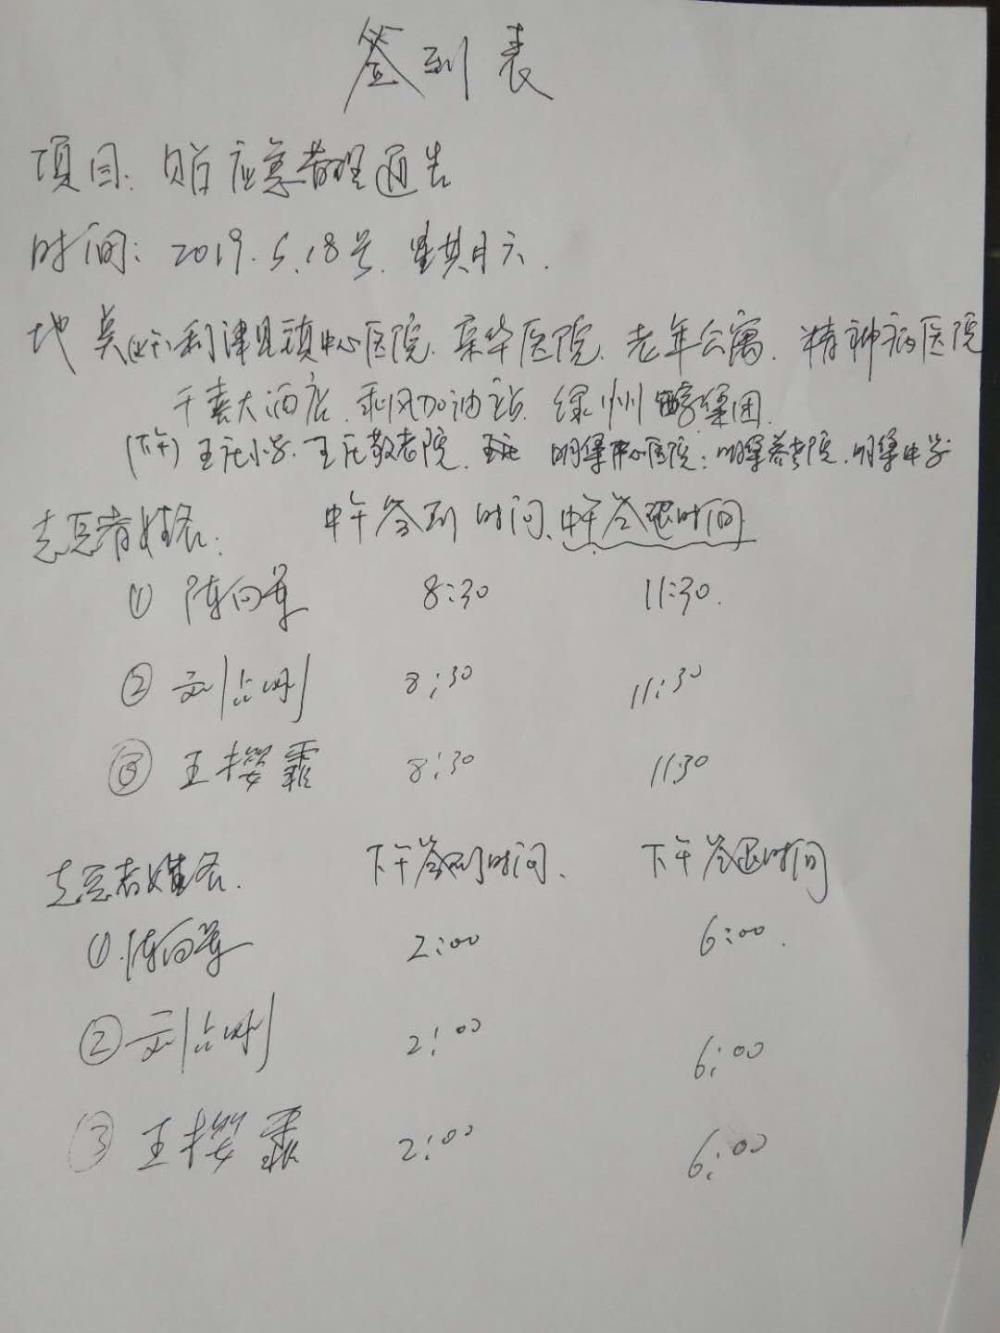 签到表
项目: 贴应急管理通告
时间: 2019.5.18号. 星期六.
地点(上午)利津县镇中心医院. 荣华医院. 老年公寓. 精神病医院
千喜大酒店. 利风加油站. 绿州 醇集团.
(下午)王庄小学. 王庄敬老院. 明集中心医院; 明集养老院. 明集中学
志愿者姓名: 中午签到时间、中午签退时间
① 陈向 8:30 11:30.
② 刘占刚 8:30 11:30
③ 王樱霖 8:30 11:30
志愿者姓名. 下午签到时间、 下午签退时间
①.陈向 2:00 6:00.
② 刘占刚 2:00 6:00
③ 王樱霖 2:00 6:00